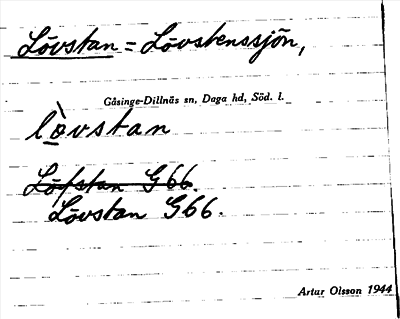 Lövstan = Lövstenssjön,
Gåsinge-Dillnäs sn, Daga hd, Söd. l.
lò̲vstan
Löfstan G 66.
Lövstan G66.
Artur Olsson 1944